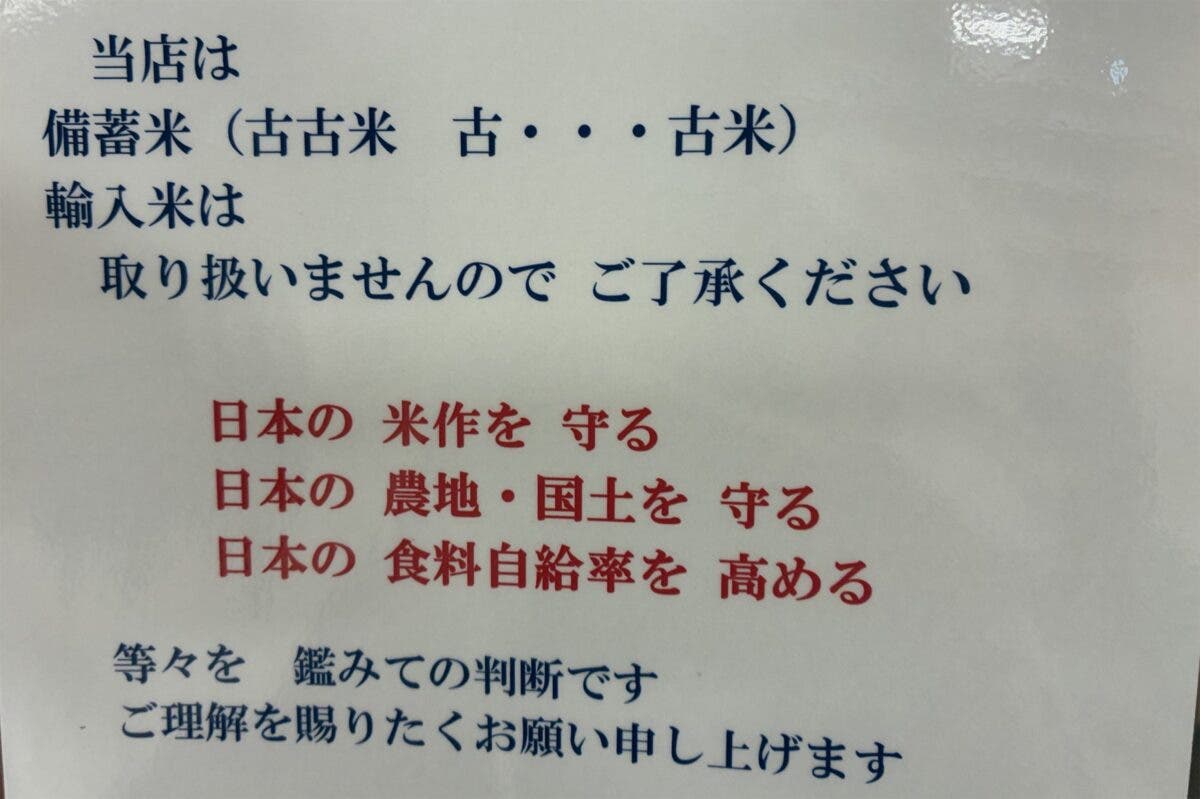 当店は
備蓄米（古古米　古・・・古米）
輸入米は
取り扱いませんので ご了承ください
日本の 米作を 守る
日本の 農地・国土を 守る
日本の 食料自給率を 高める
等々を　鑑みての判断です
ご理解を賜りたくお願い申し上げます